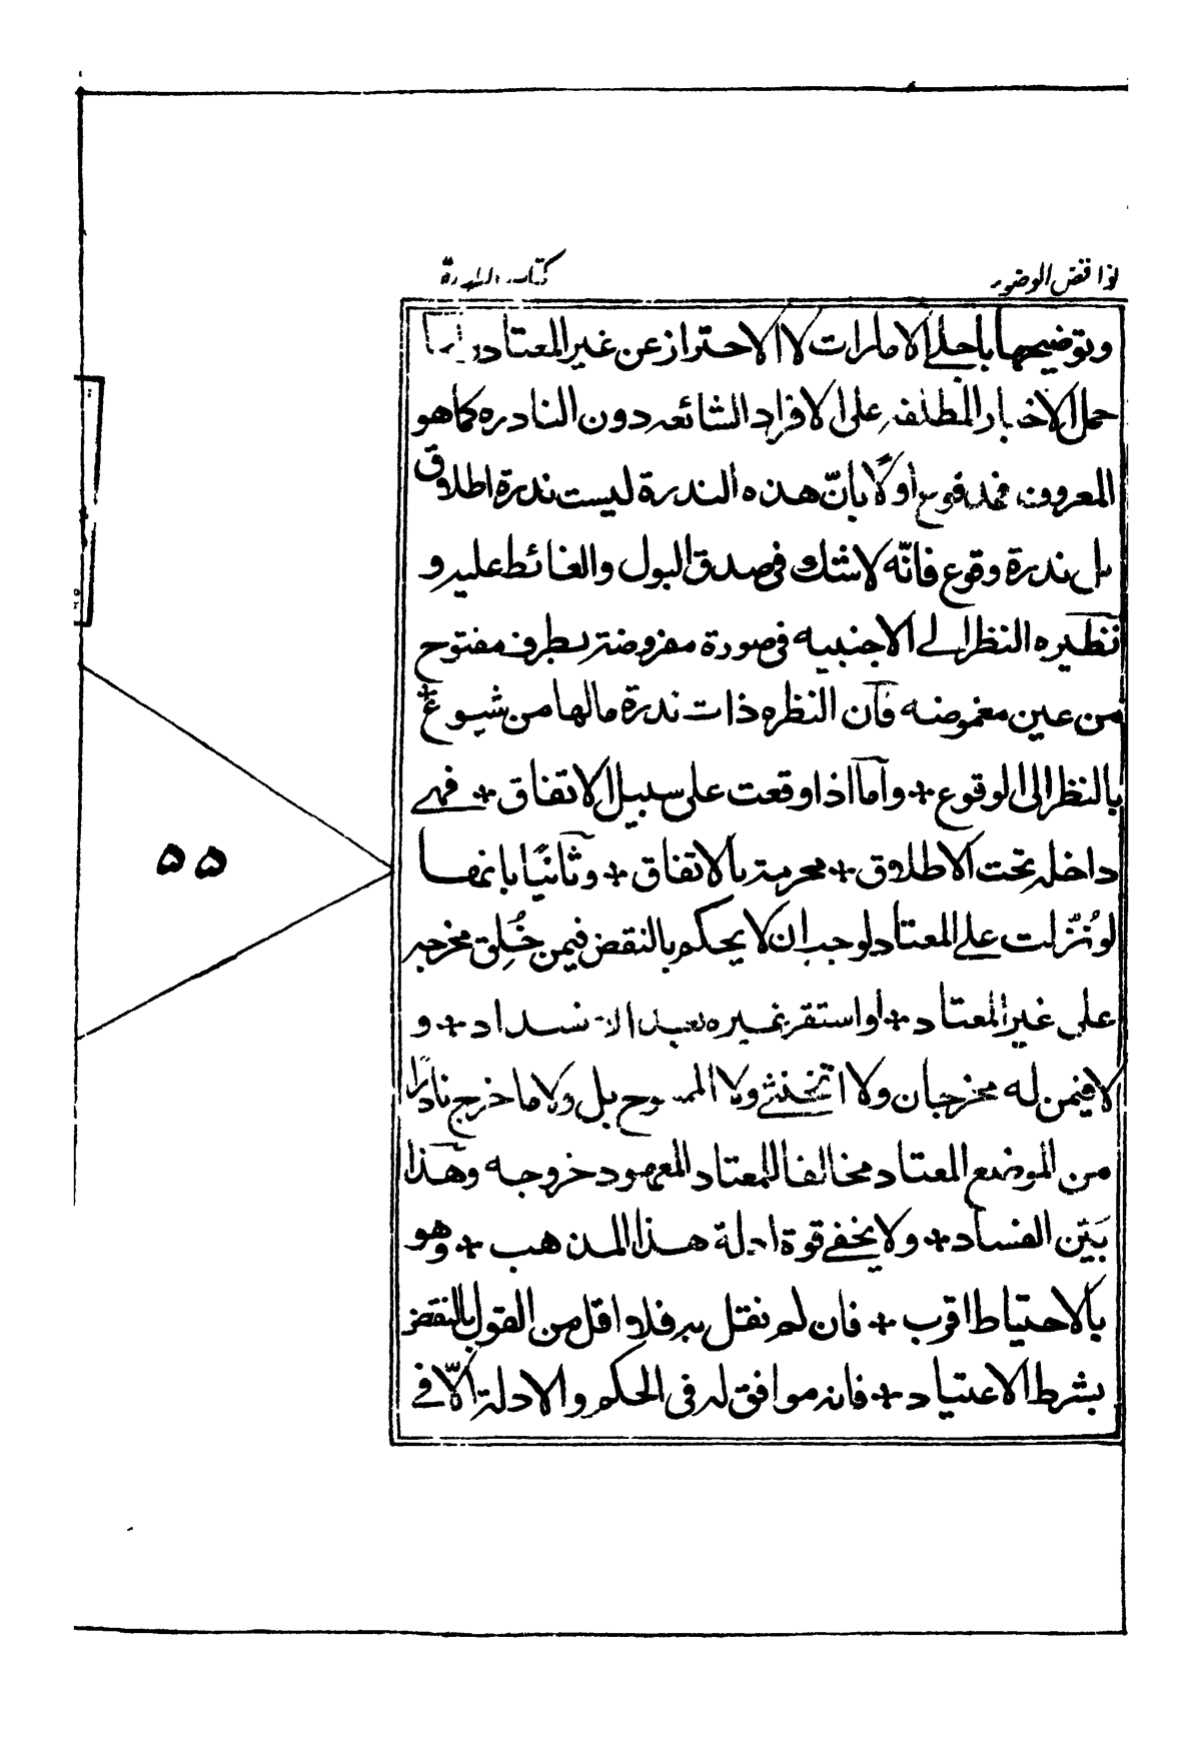 نواقض الوضوء
كتاب الطهارة
وتوضيحها باجلى الامارات لا الاحتراز عن غير المعتاد واما
حمل الاخبار المطلقه على الافراد الشائعه دون النادره كما هو
المعروف فمدفوع اولًا بانّ هذه الندرة ليست ندرة اطلاق
بل ندرة وقوع فانّه لا شك فى صدق البول والغائط عليه و
نظيره النظر الى الاجنبيه فى صورة مفروضة بطرف مفتوح
من عين مغموضه فان النظره ذات ندرة مالها من شيوع +
بالنظر الى الوقوع + واما اذا وقعت على سبيل الاتفاق + فهى
داخلة تحت الاطلاق + محرمة بالاتفاق + وثانيًا بانها
لو نُزّلت على المعتاد لوجب ان لا يحكم بالنقض فيمن خُلِق مخرجه
على غير المعتاد + او استقر بغيره بعد الانسداد + و
لا فيمن له مخرجان ولا الخنثى ولا الممسوح بل ولا ما خرج نادرًا
من الموضع المعتاد مخالفا للمعتاد المعهود خروجه وهذا
بَيّن الفساد + ولا يخفى قوة ادلة هذا المذهب + وهو
بالاحتياط اقرب + فان لم نقل به فلا اقل من القول بالنقض
بشرط الاعتياد + فانه موافق له فى الحكم والادلة الّا فى
۵۵